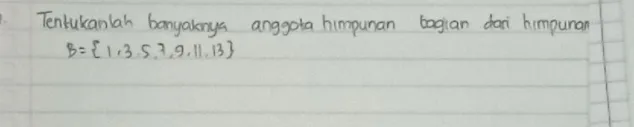 Tentukanlah banyaknya anggota himpunan bagian dari himpunan
B = {1,3,5,7,9,11,13}